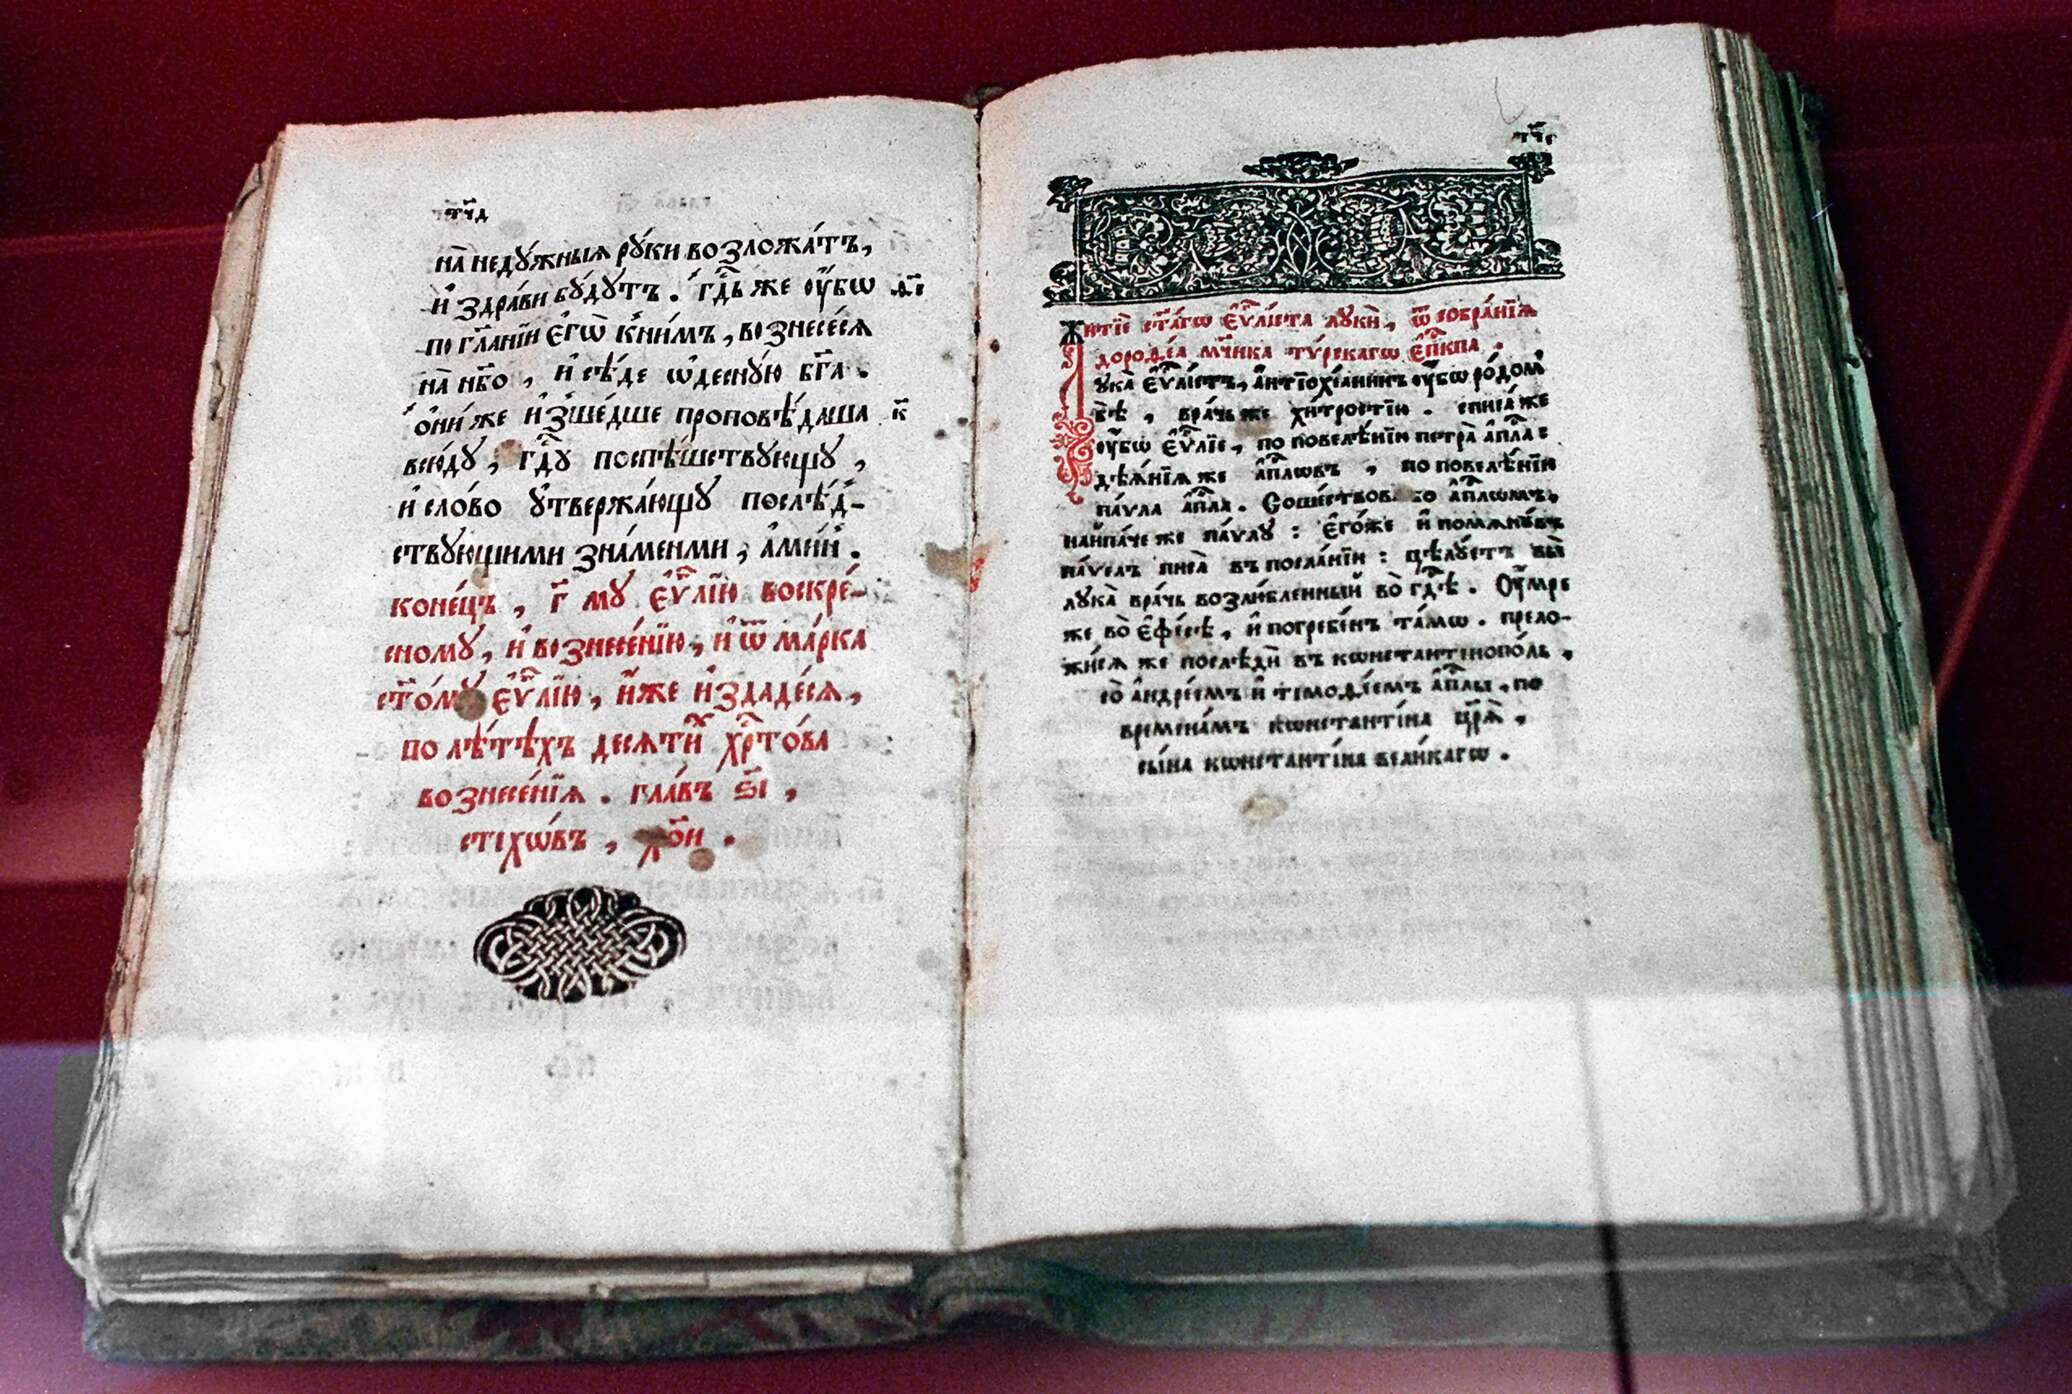 тч҃д
на̀ недꙋ́жныѧ рꙋ́ки возложа́тъ,
и҆ здра́ви бꙋ́дꙋтъ. гдⷭ҇ь же ᲂу҆́бѡ
по гл҃а́нїи є҆гѡ̀ к̾ни́мъ, вознесе́сѧ
на̀ нб҃о, и҆ сѣ́де ѡ҆деснꙋ́ю бг҃а.
ѻ҆ни́ же и҆зше́дше проповѣ́даша к҃
всю́дꙋ, гдⷭ҇ꙋ поспѣ́шствꙋющꙋ,
и҆ сло́во ᲂу҆твержа́ющꙋ послѣ́д-
ствꙋющими зна́менми, а҆ми́нь.
коне́цъ, г҃ мꙋ є҆ѵⷢ҇лїю воскре́-
сномꙋ, и҆ вознесе́нїю, и҆ ѿ ма́рка
ст҃о́мꙋ є҆ѵⷢ҇лїю, и҆́же и҆здаде́сѧ,
по лѣ́тѣхъ десѧти́ хрⷭ҇то́ва
вознесе́нїѧ. гла́въ ѕ҃і,
стїхѡ́въ,
тч҃е
житїѐ ст҃а́гѡ є҆ѵⷢ҇лі́ста лꙋкѝ, ѿ собра́нїѧ
дороѳе́а мч҃нка тѵ́рскагѡ є҆пⷭ҇кпа.
лꙋка̀ є҆ѵⷢ҇лі́стъ, а҆нтїохі́анинъ ᲂу҆́бѡ ро́домъ
бѣ̀, вра́чь же хи́тростїю. списа́ же
ᲂу҆́бѡ є҆ѵⷢ҇лїе, по повелѣ́нїю петра̀ а҆пⷭ҇ла:
дѣѧ́нїѧ же а҆пⷭ҇лѡвъ, по повелѣ́нїю
па́ѵла а҆пⷭ҇ла. а҆пⷭ҇лѡмъ,
наи҆па́че же па́ѵлꙋ: є҆го́же и҆ помѧнꙋ́въ
па́ѵелъ писа̀ въ посла́нїи: цѣлꙋ́етъ вы̀
лꙋка̀ вра́чь возлю́бленный во̀ гдⷭ҇ѣ. Оу҆́мре
же во̀ є҆фе́сѣ, и҆ погребе́нъ та́мѡ. прело-
жи́сѧ же послѣдѝ въ кѡнстантїнопо́ль,
со̀ а҆ндре́емъ и҆ тїмоѳе́емъ а҆пⷭ҇лы, по
временⷨамъ кѡнстанті́на цр҃ѧ̀,
сы́на кѡнстанті́на вели́кагѡ.